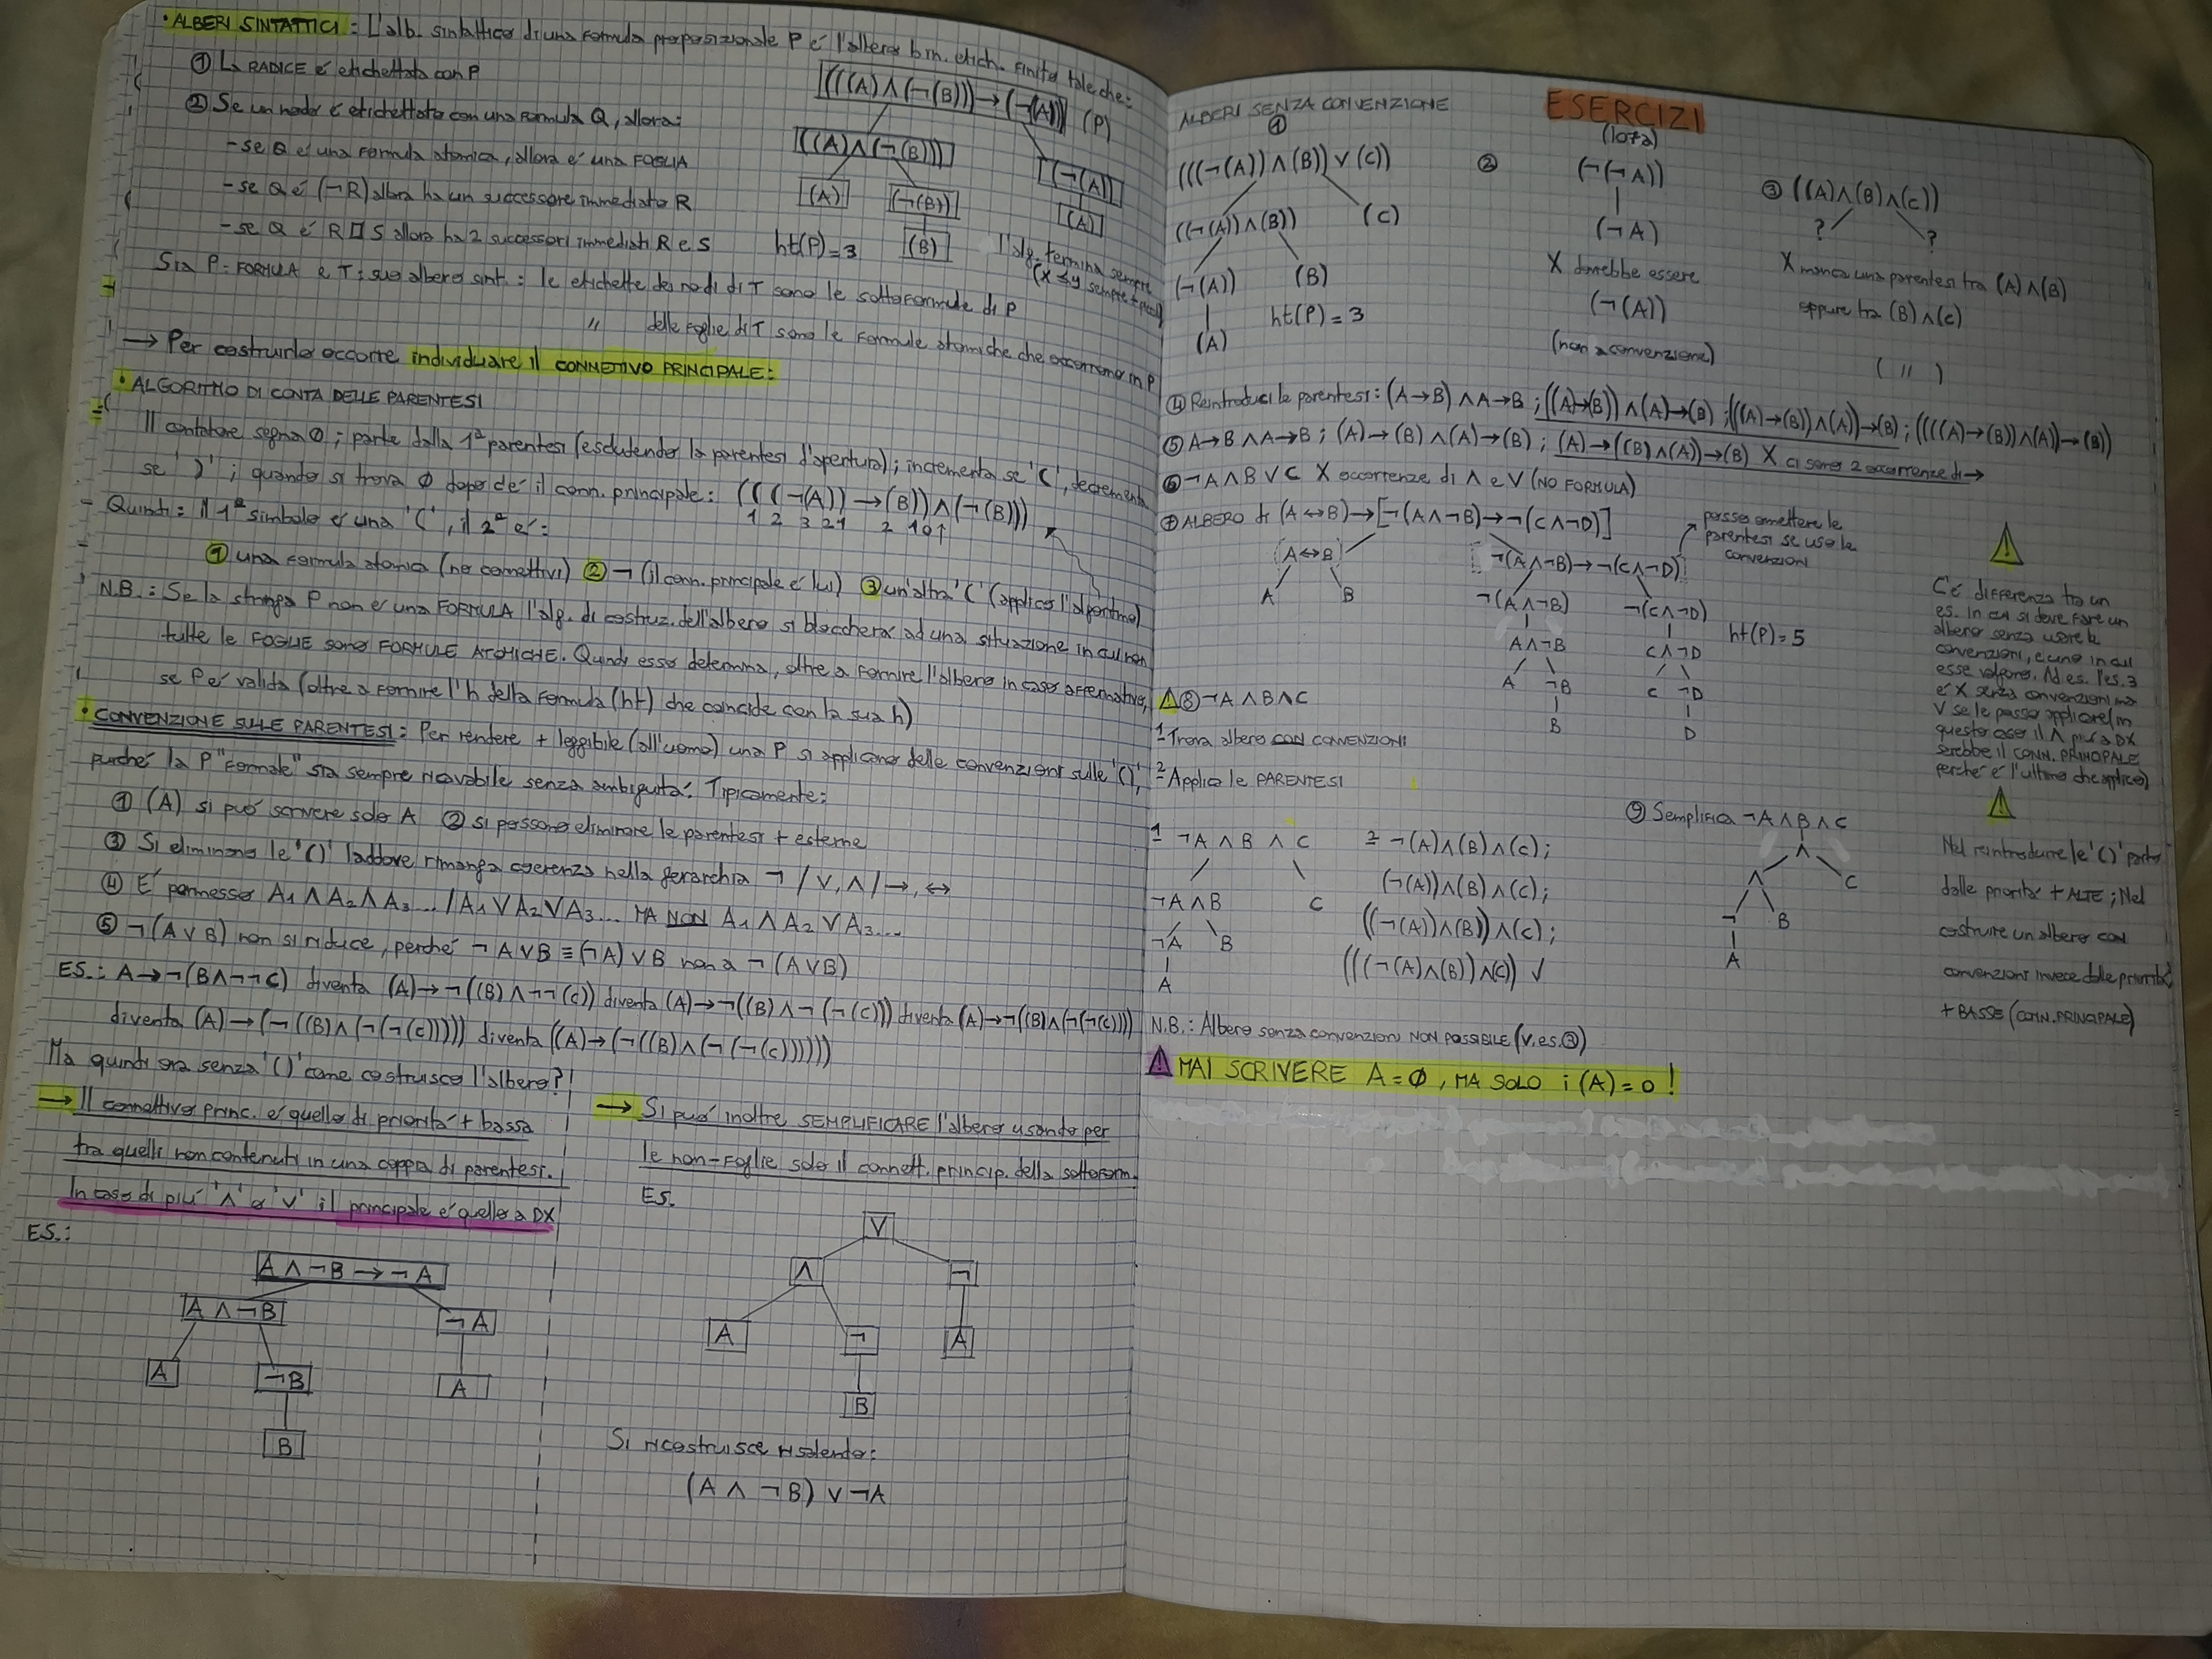 • ALBERI SINTATTICI : L'alb. sintattico di una formula proposizionale P é l'albero bin. etich. finito tale che:
① La RADICE é etichettata con P
② Se un nodo é etichettato con una formula Q, allora:
- se Q é una formula atomica, allora é una FOGLIA
- se Q é (¬R) allora ha un successore immediato R
- se Q é R □ S allora ha 2 successori immediati R e S
(((A)∧(¬(B)))→(¬(A))) (P)
((A)∧(¬(B)))
(¬(A))
(A)
(¬(B))
(A)
(B)
ht(P)=3
l'alg. termina sempre
Sia P = FORMULA e T : suo albero sint. : le etichette dei nodi di T sono le sottoformule di P
" delle foglie di T sono le formule atomiche che occorrono in P
→ Per costruirlo occorre individuare il CONNETTIVO PRINCIPALE:
• ALGORITMO DI CONTA DELLE PARENTESI
Il contatore segna 0 ; parte dalla 1ª parentesi (escludendo la parentesi d'apertura); incrementa se '(', decrementa
se ')' ; quando si trova 0 dopo c'é il conn. principale: (((¬(A))→(B))∧(¬(B)))
1 2 3 2 1 2 1 0 ↑
- Quindi: il 1° simbolo é una '(', il 2° é:
① una formula atomica (no connettivi) ② ¬ (il conn. principale é lui) ③ un'altra '(' (applico l'algoritmo)
N.B.: Se la stringa P non é una FORMULA l'alg. di costruz. dell'albero si bloccherà ad una situazione in cui non
tutte le FOGLIE sono FORMULE ATOMICHE. Quindi esso determina, oltre a fornire l'albero in caso affermativo,
se P é valida (oltre a fornire l'h della formula (ht) che coincide con la sua h)
• CONVENZIONE SULLE PARENTESI : Per rendere + leggibile (all'uomo) una P si applicano delle convenzioni sulle '()',
purché la P "formale" sia sempre ricavabile senza ambiguità. Tipicamente:
① (A) si può scrivere solo A ② si possono eliminare le parentesi + esterne
③ Si eliminano le '()' laddove rimanga coerenza nella gerarchia ¬ / ∨, ∧ / →, ↔
④ É permesso A₁∧A₂∧A₃... / A₁∨A₂∨A₃... MA NON A₁∧A₂∨A₃...
⑤ ¬(A∨B) non si riduce, perché ¬A∨B ≡ (¬A)∨B non a ¬(A∨B)
ES.: A→¬(B∧¬¬C) diventa (A)→¬((B)∧¬¬(C)) diventa (A)→¬((B)∧¬(¬(C))) diventa (A)→¬((B)∧(¬(¬(C))))
diventa (A)→(¬((B)∧(¬(¬(C))))) diventa ((A)→(¬((B)∧(¬(¬(C))))))
Ma quindi ora senza '()' come costruisco l'albero?!
→ Il connettivo princ. é quello di priorità + bassa
tra quelli non contenuti in una coppia di parentesi.
In caso di più '∧' o '∨' il principale é quello a DX
ES.:
A∧¬B→¬A
A∧¬B
¬A
A
¬B
A
B
→ Si può inoltre SEMPLIFICARE l'albero usando per
le non-foglie solo il connett. princip. della sottoform.
ES.
∨
∧
¬
A
¬
A
B
Si ricostruisce risalendo:
(A∧¬B)∨¬A
ALBERI SENZA CONVENZIONE
ESERCIZI
(107a)
①
(((¬(A))∧(B))∨(C))
((¬(A))∧(B))
(C)
(¬(A))
(B)
(A)
ht(P)=3
②
(¬(¬A))
(¬A)
X dovrebbe essere
(¬(A))
(non a convenzione)
③ ((A)∧(B)∧(C))
? ?
X manca una parentesi tra (A)∧(B)
oppure tra (B)∧(C)
( " )
④ Reintroduci le parentesi: (A→B)∧A→B ; ((A)→(B))∧(A)→(B) ; (((A)→(B))∧(A))→(B) ; ((((A)→(B))∧(A))→(B))
⑤ A→B∧A→B ; (A)→(B)∧(A)→(B) ; (A)→((B)∧(A))→(B) X ci sono 2 occorrenze di→
⑥ ¬A∧B∨C X occorrenze di ∧ e ∨ (NO FORMULA)
⑦ ALBERO di (A↔B)→[¬(A∧¬B)→¬(C∧¬D)]
posso omettere le
parentesi se uso le
convenzioni
(A↔B)
¬(A∧¬B)→¬(C∧¬D)
A B
¬(A∧¬B) ¬(C∧¬D)
ht(P)=5
A∧¬B C∧¬D
A ¬B C ¬D
B D
C'é differenza tra un
es. in cui si deve fare un
albero senza usare le
convenzioni, e uno in cui
esse valgono. Ad es. l'es. 3
é X senza convenzioni ma
V se le posso applicare (in
questo caso il ∧ più a DX
sarebbe il CONN. PRINCIPALE
perché é l'ultimo che applico)
⑧ ¬A∧B∧C
1-Trova albero CON CONVENZIONI
2-Applica le PARENTESI
1 ¬A∧B∧C
¬A∧B C
¬A B
A
2 ¬(A)∧(B)∧(C);
(¬(A))∧(B)∧(C);
((¬(A))∧(B))∧(C);
(((¬(A)∧(B))∧(C)) √
⑨ Semplifica ¬A∧B∧C
∧
∧ C
¬ B
A
Nel reintrodurre le '()' parto
dalle priorità + ALTE ; Nel
costruire un albero con
convenzioni invece dalle priorità
+ BASSE (CONN. PRINCIPALE)
N.B.: Albero senza convenzioni NON POSSIBILE (v. es. ③)
MAI SCRIVERE A=0, MA SOLO i(A)=0!